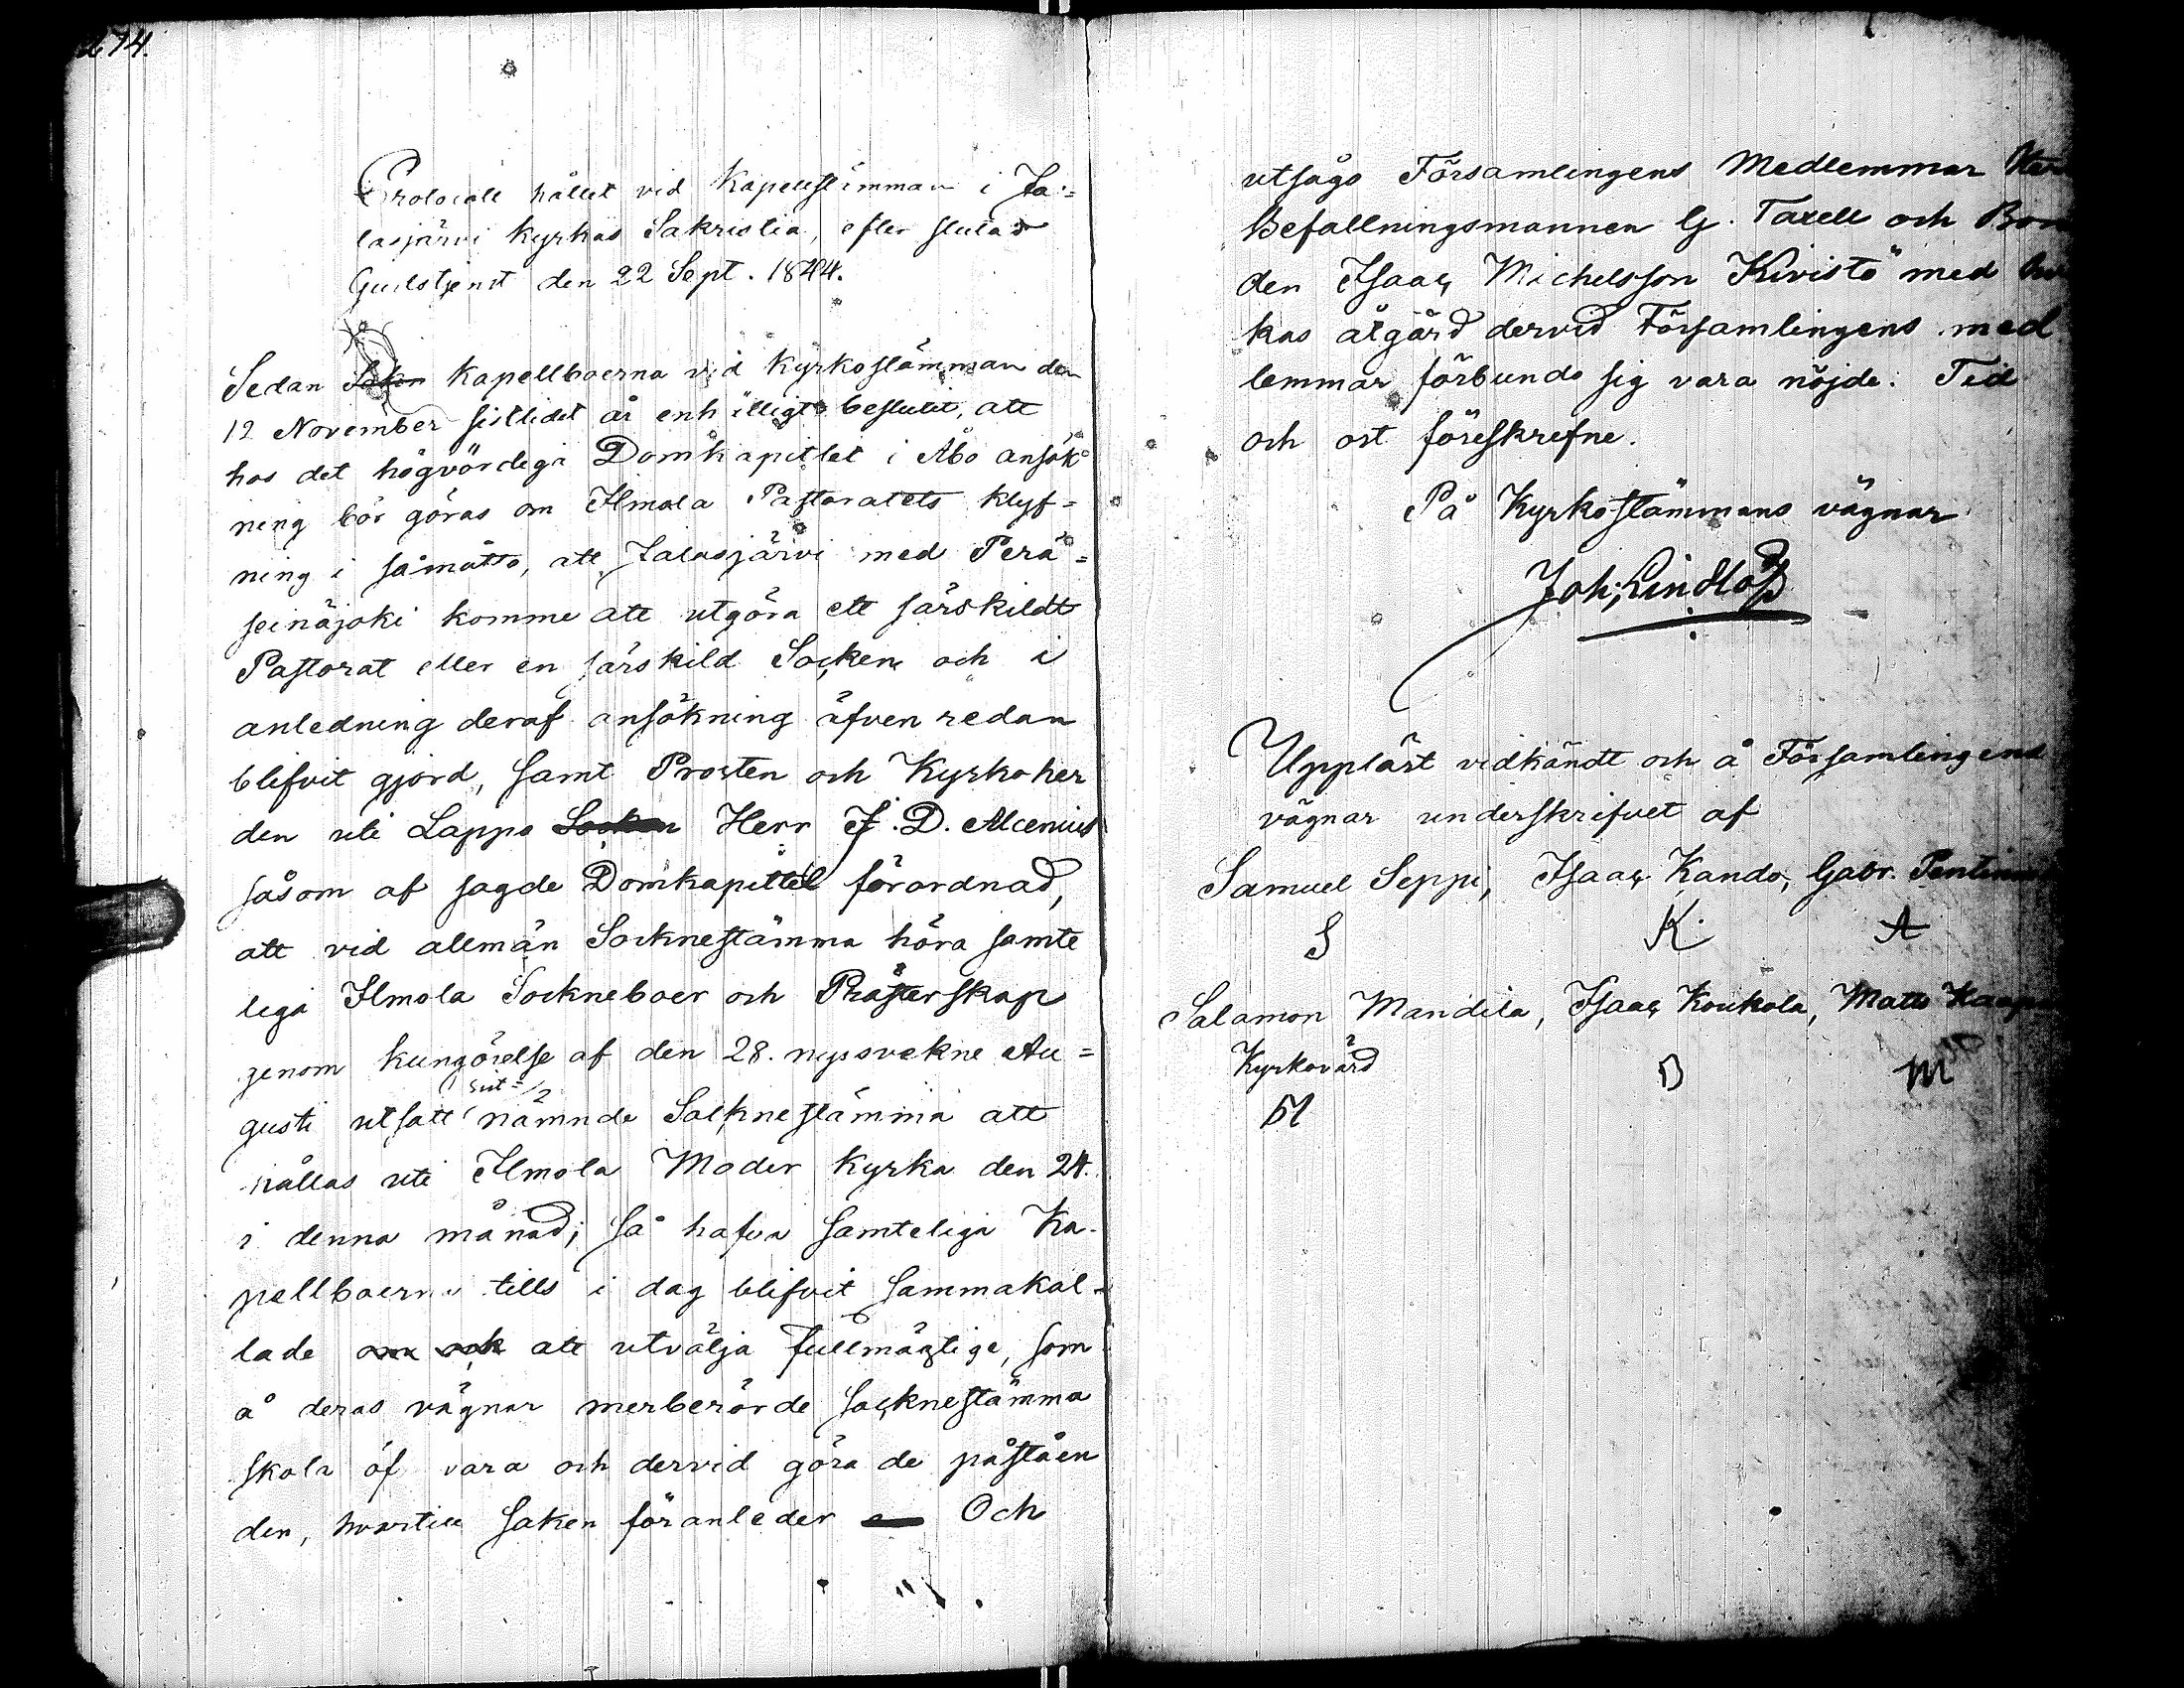 274.
Protocoll hållet vid Kapellstämman i Ja=
lasjärvi Kyrkas Sakristia, efter slutad
Gudstjenst den 22 Sept. 1844.
Sedan Kapellboerna vid Kyrkostämman den
12 November sistlidet år enhälligt beslutit, att
hos det högvördiga Domkapitlet i Åbo ansök
ning bör göras om Ilmola Pastoratets klyf=
ning i såmåtto, att Jalasjärvi med Perä=
seinäjoki komme att utgöra ett särskildt
Pastorat eller en särskild Socken och i
anledning deraf ansökning äfven redan
blifvit gjord, samt Prosten och Kyrkoher
den uti Lappo Socken Herr J. D. Alcenius
såsom af sagde Domkapittel förordnad,
att vid allmän Socknestämma höra samte
liga Ilmola Sockneboer och Prästerskap
genom kungörelse af den 28. nyssvekne Au=
sist=
gusti utsatt nämnde Socknestämma att
hållas uti Ilmola Moder Kyrka den 24.
i denna månad; så hafva samteliga Ka-
pellboerna tills i dag blifvit sammakal-
lade om och att utvälja fullmägtige, som
å deras vägnar merberörde socknestämma
skola öf vara och dervid göra de påståen
den, hvartill saken föranleder Och
utsågo Församlingens Medlemmar
Befallningsmannen G. Taxell och Bon
den Isaac Michelsson Kivistö med
kas åtgärd dervid Församlingens med
lemmar förbundo sig vara nöjde. Tid
och ort föreskrefne.
På Kyrkostämmans vägnar
Joh: Lindlöf
Uppläst vidkändt och å Församlingens
vägnar underskrifvet af
Samuel Seppi, Isaac Kando, Gabr.
S K A
Salamon Mandila, Isaac Koukola, Matts
Kyrkovärd B M
M